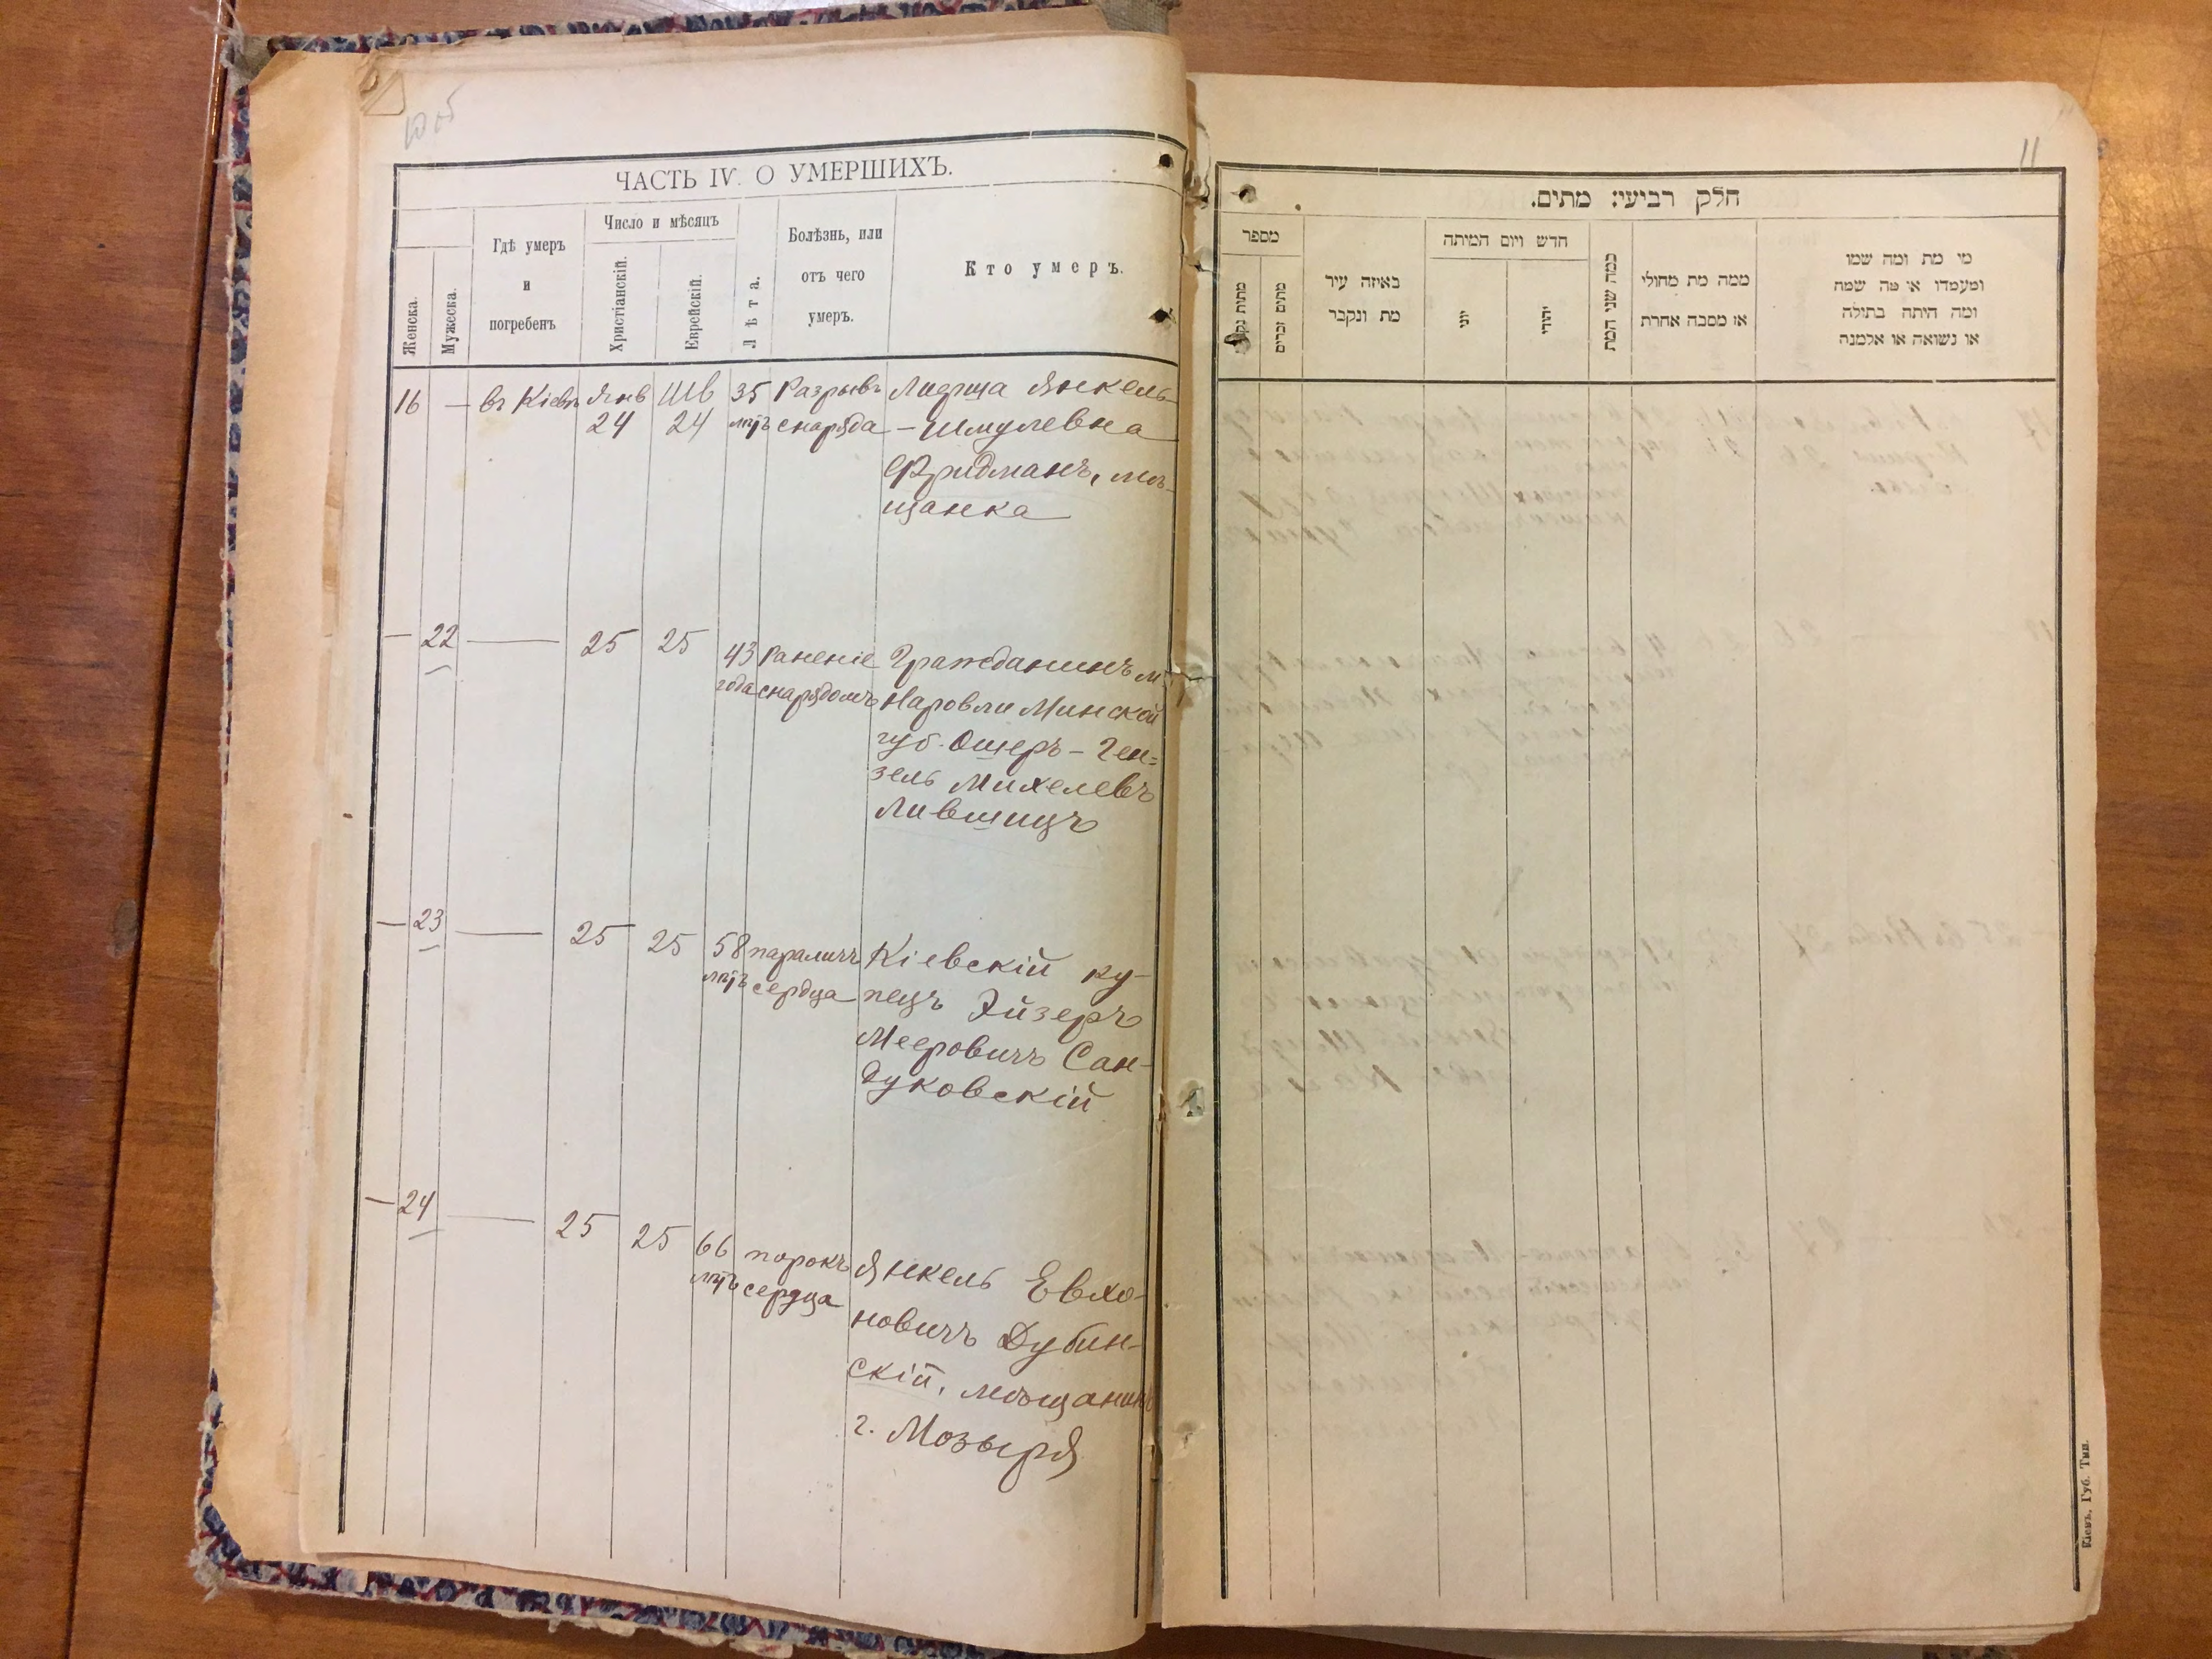 10 об
ЧАСТЬ IV. О УМЕРШИХЪ.
Женска.
Мужеска.
Гдѣ умеръ
и
погребенъ
Число и мѣсяцъ
Христіанскій.
Еврейскій.
Лѣта.
Болѣзнь, или
отъ чего
умеръ.
Кто умеръ.
16 — въ Кіевѣ Янв Шв 35 Разрывъ Янкель-
24 24 лѣтъ снаряда – Шмулевна
Фридманъ, мѣ-
щанка
— 22 — 25 25 43 Раненіе Гражданинъ м.
года снарядомъ Наровли Минской
губ. Ошеръ – Ген=
зель Михелевъ
Лившицъ
— 23 — 25 25 58 параличъ Кіевскій ку-
лѣтъ сердца пецъ Эйзеръ
Мееровичъ Сан-
дуковскій
— 24 — 25 25 66 порокъ Янкель Евхо-
лѣтъ сердца новичъ Дубин-
скій, мѣщанинъ
г. Мозыря
11
חלק רביעי: מתים.
מספר
מתים זכרים
באיזה עיר
מת ונקבר
חדש ויום המיתה
יוני
יהודי
כמה שני המת
ממה מת מחולי
או מסבה אחרת
מי מת ומה שמו
ומעמדו או מה שמה
ומה היתה בתולה
או נשואה או אלמנה
Кіевъ. Губ. Тип.